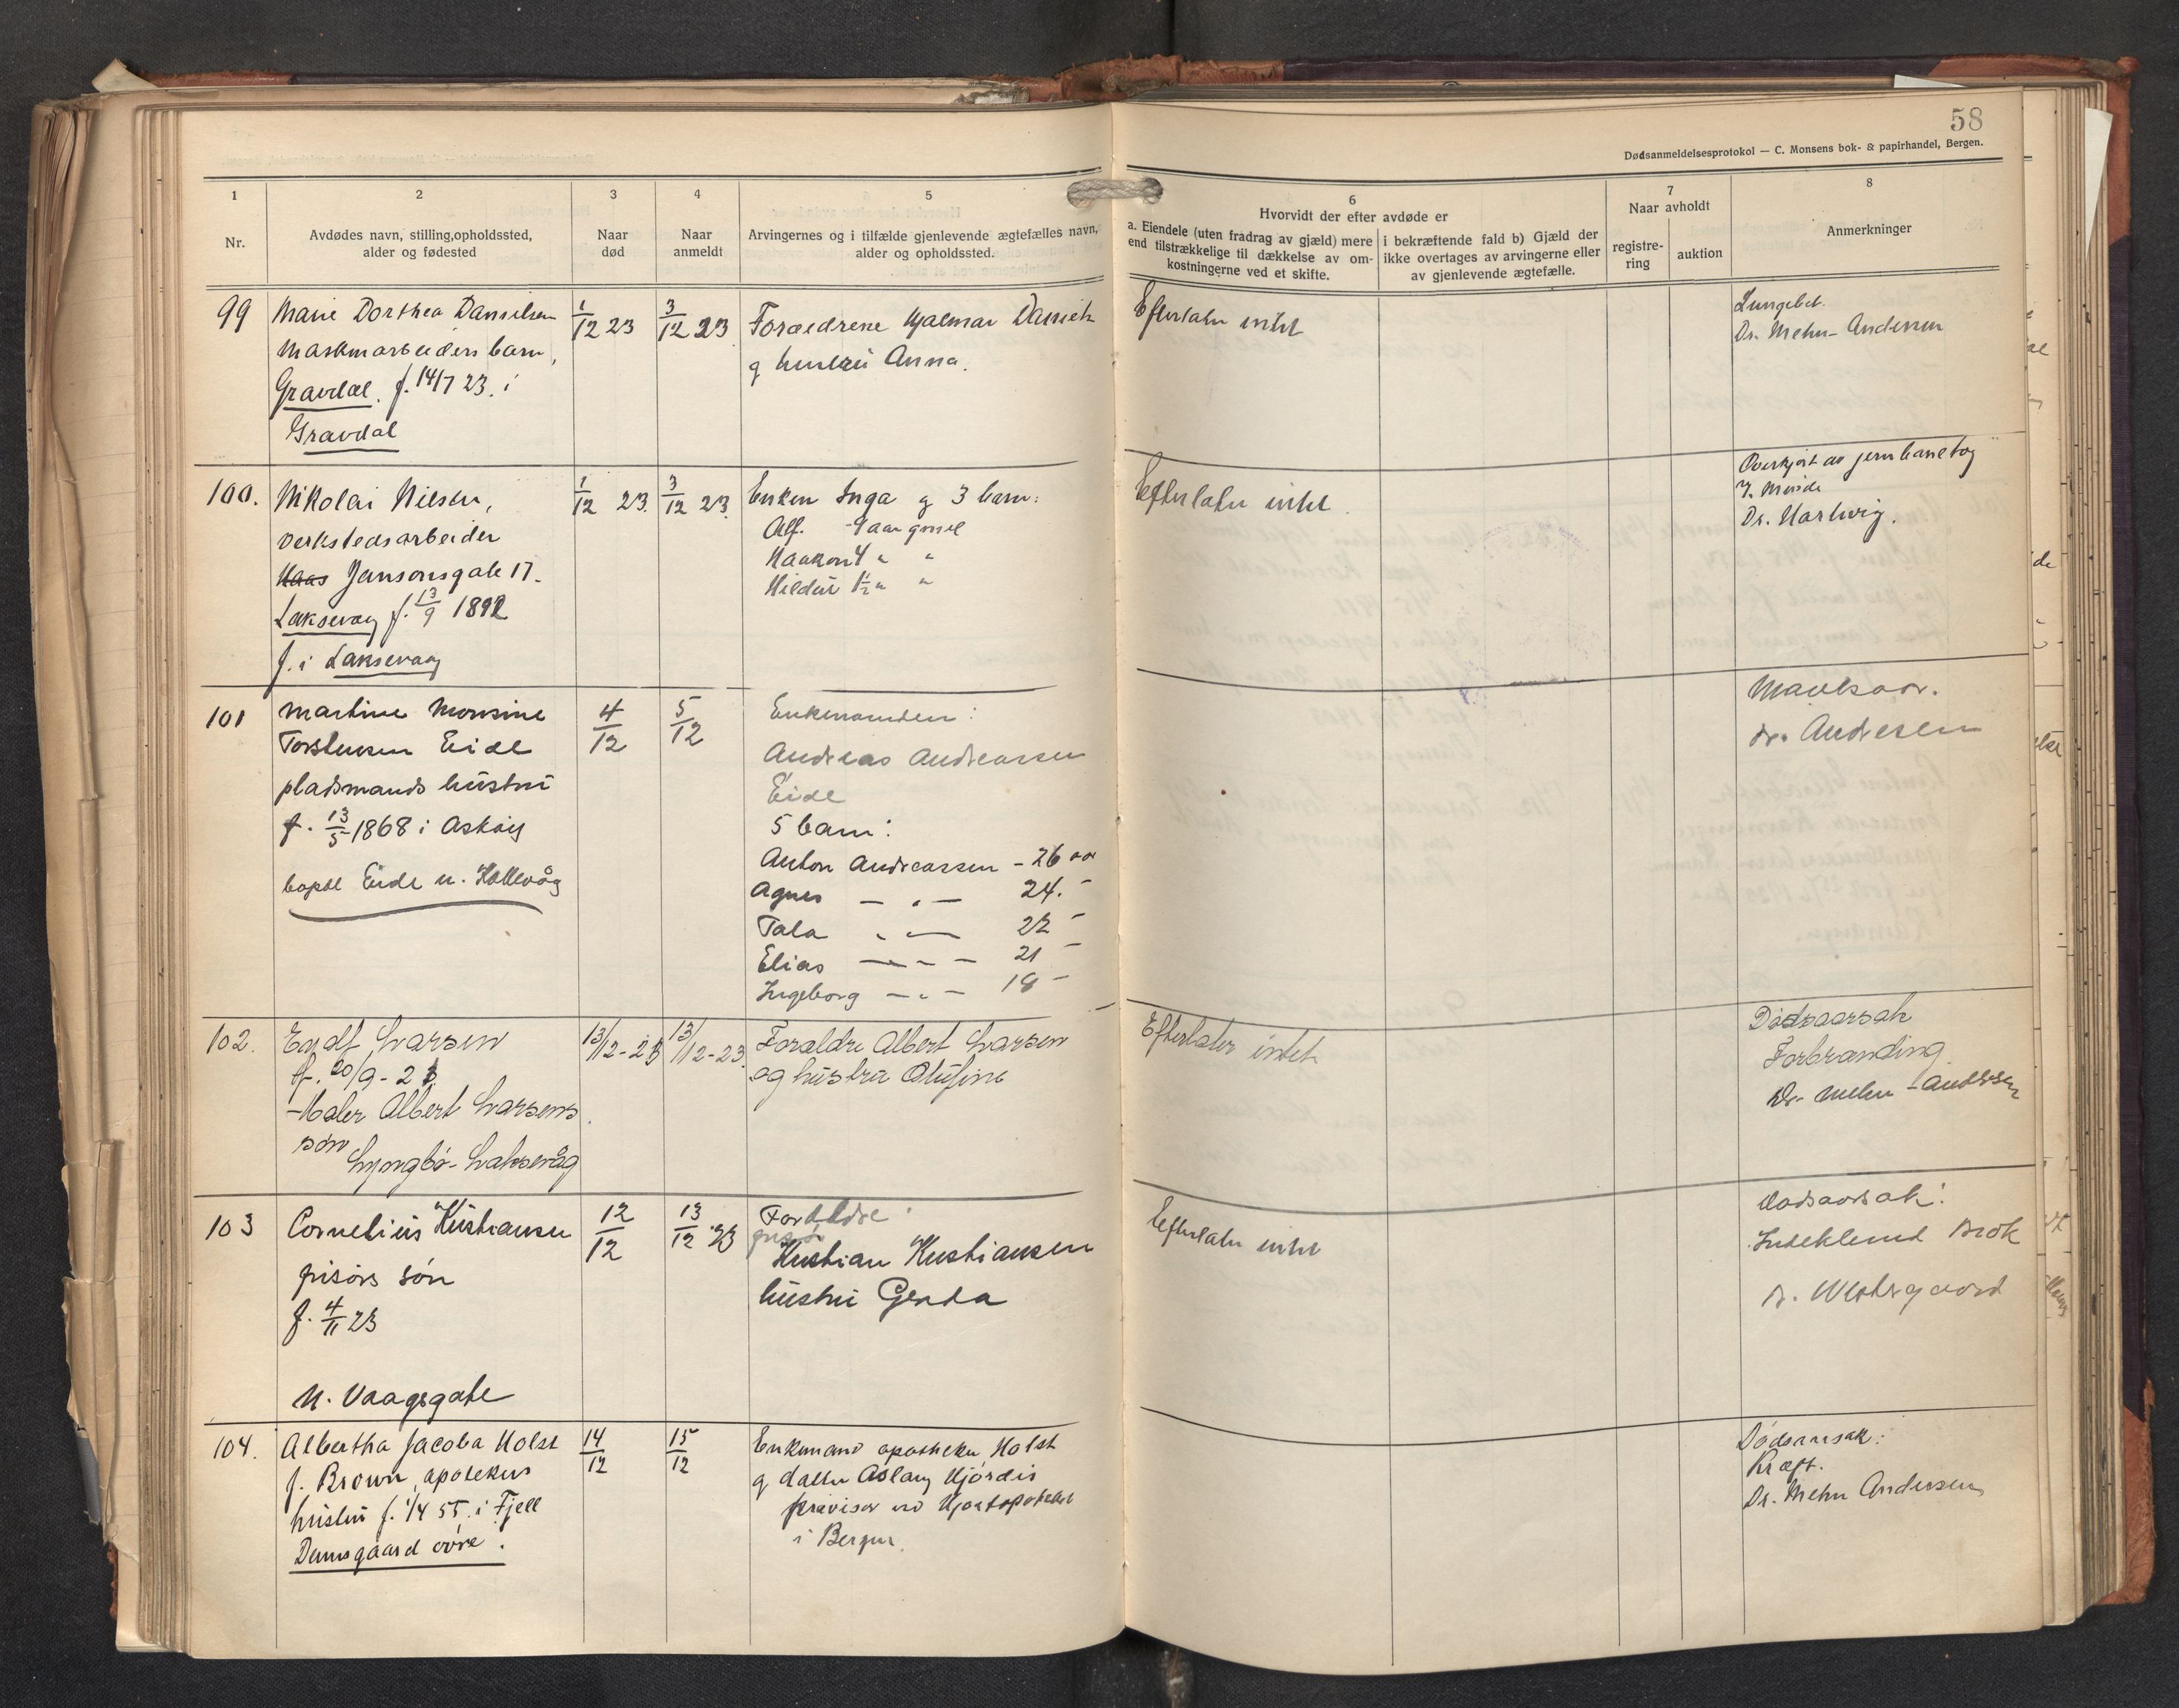 58
Dødsanmeldelsesprotokol — C. Monsens bok- & papirhandel, Bergen.
1
Nr.
2
Avdødes navn, stilling, opholdssted,
alder og fødested
3
Naar
død
4
Naar
anmeldt
5
Arvingernes og i tilfælde gjenlevende ægtefælles navn,
alder og opholdssted.
6
Hvorvidt der efter avdøde er
a. Eiendele (uten fradrag av gjæld) mere
end tilstrækkelige til dækkelse av om-
kostningerne ved et skifte.
i bekræftende fald b) Gjæld der
ikke overtages av arvingerne eller
av gjenlevende ægtefælle.
7
Naar avholdt
registre-
ring
auktion
8
Anmerkninger
99
Marie Dorthea Danielsen
maskinarbeiders barn,
Gravdal. f. 14/7 23. i
Gravdal
1/12 23
3/12 23
Forældrene Hjalmar Daniels
g hustru Anna.
Efterlater intet
Lungebet.
Dr. Mehn-Andersen
100.
Nikolai Nilsen,
verkstedsarbeider
Jansonsgate 17.
Laksevaag f. 13/9 1892
f. i Laksevaag
1/12 23.
3/12 23.
Enken Inga g 3 barn:
Alf. 9 aar gml
Haakon 4 " "
Hildur 1½ " "
Efterlater intet.
Overkjørt av jernbanetog
Dr. Hartwig.
101
Martine Monsine
Torstensen Eide
pladsmands hustru
f. 13/5 1868 i Askøy
bopæl Eide n. Hallevåg
4/12
5/12
Enkemanden:
Andreas Andreassen
Eide
5 barn:
Anton Andreassen - 26 aar
Agnes — " — 24. -
Tala " — 22 -
Elias — " — 21 -
Ingeborg — " — 18 -
dr. Andresen
102.
Eyolf Larsen
f. 20/9-23
Maler Albert Larsens
søn
Lyngbø - Laksevåg
13/12-23
13/12-23.
Foraldre Albert Larsen
og hustru Olufine
Efterlater intet
Dødsaarsak
Forbrænding.
Dr. Mehn-Andersen
103
Cornelius Kristiansen
frisørs søn
f. 4/11 23
N. Vaagsgate
12/12
13/12 23
Foraldre:
Kristian Kristiansen
hustru Gerda
Efterlater intet
Dødsaarsak:
Indeklemt Brok
dr. Westergaard
104.
Albertha Jacoba Holst
f. Brown, apotekers
hustru f. 1/4 55. i Fjell
Damsgaard øvre.
14/12
15/12
Enkemand apotheker Holst
g datter Aslaug Hjørdis
provisor ved Hjorteapoteket
i Bergen.
Dødsaarsak:
Kræft.
Dr. Mehn Andersen